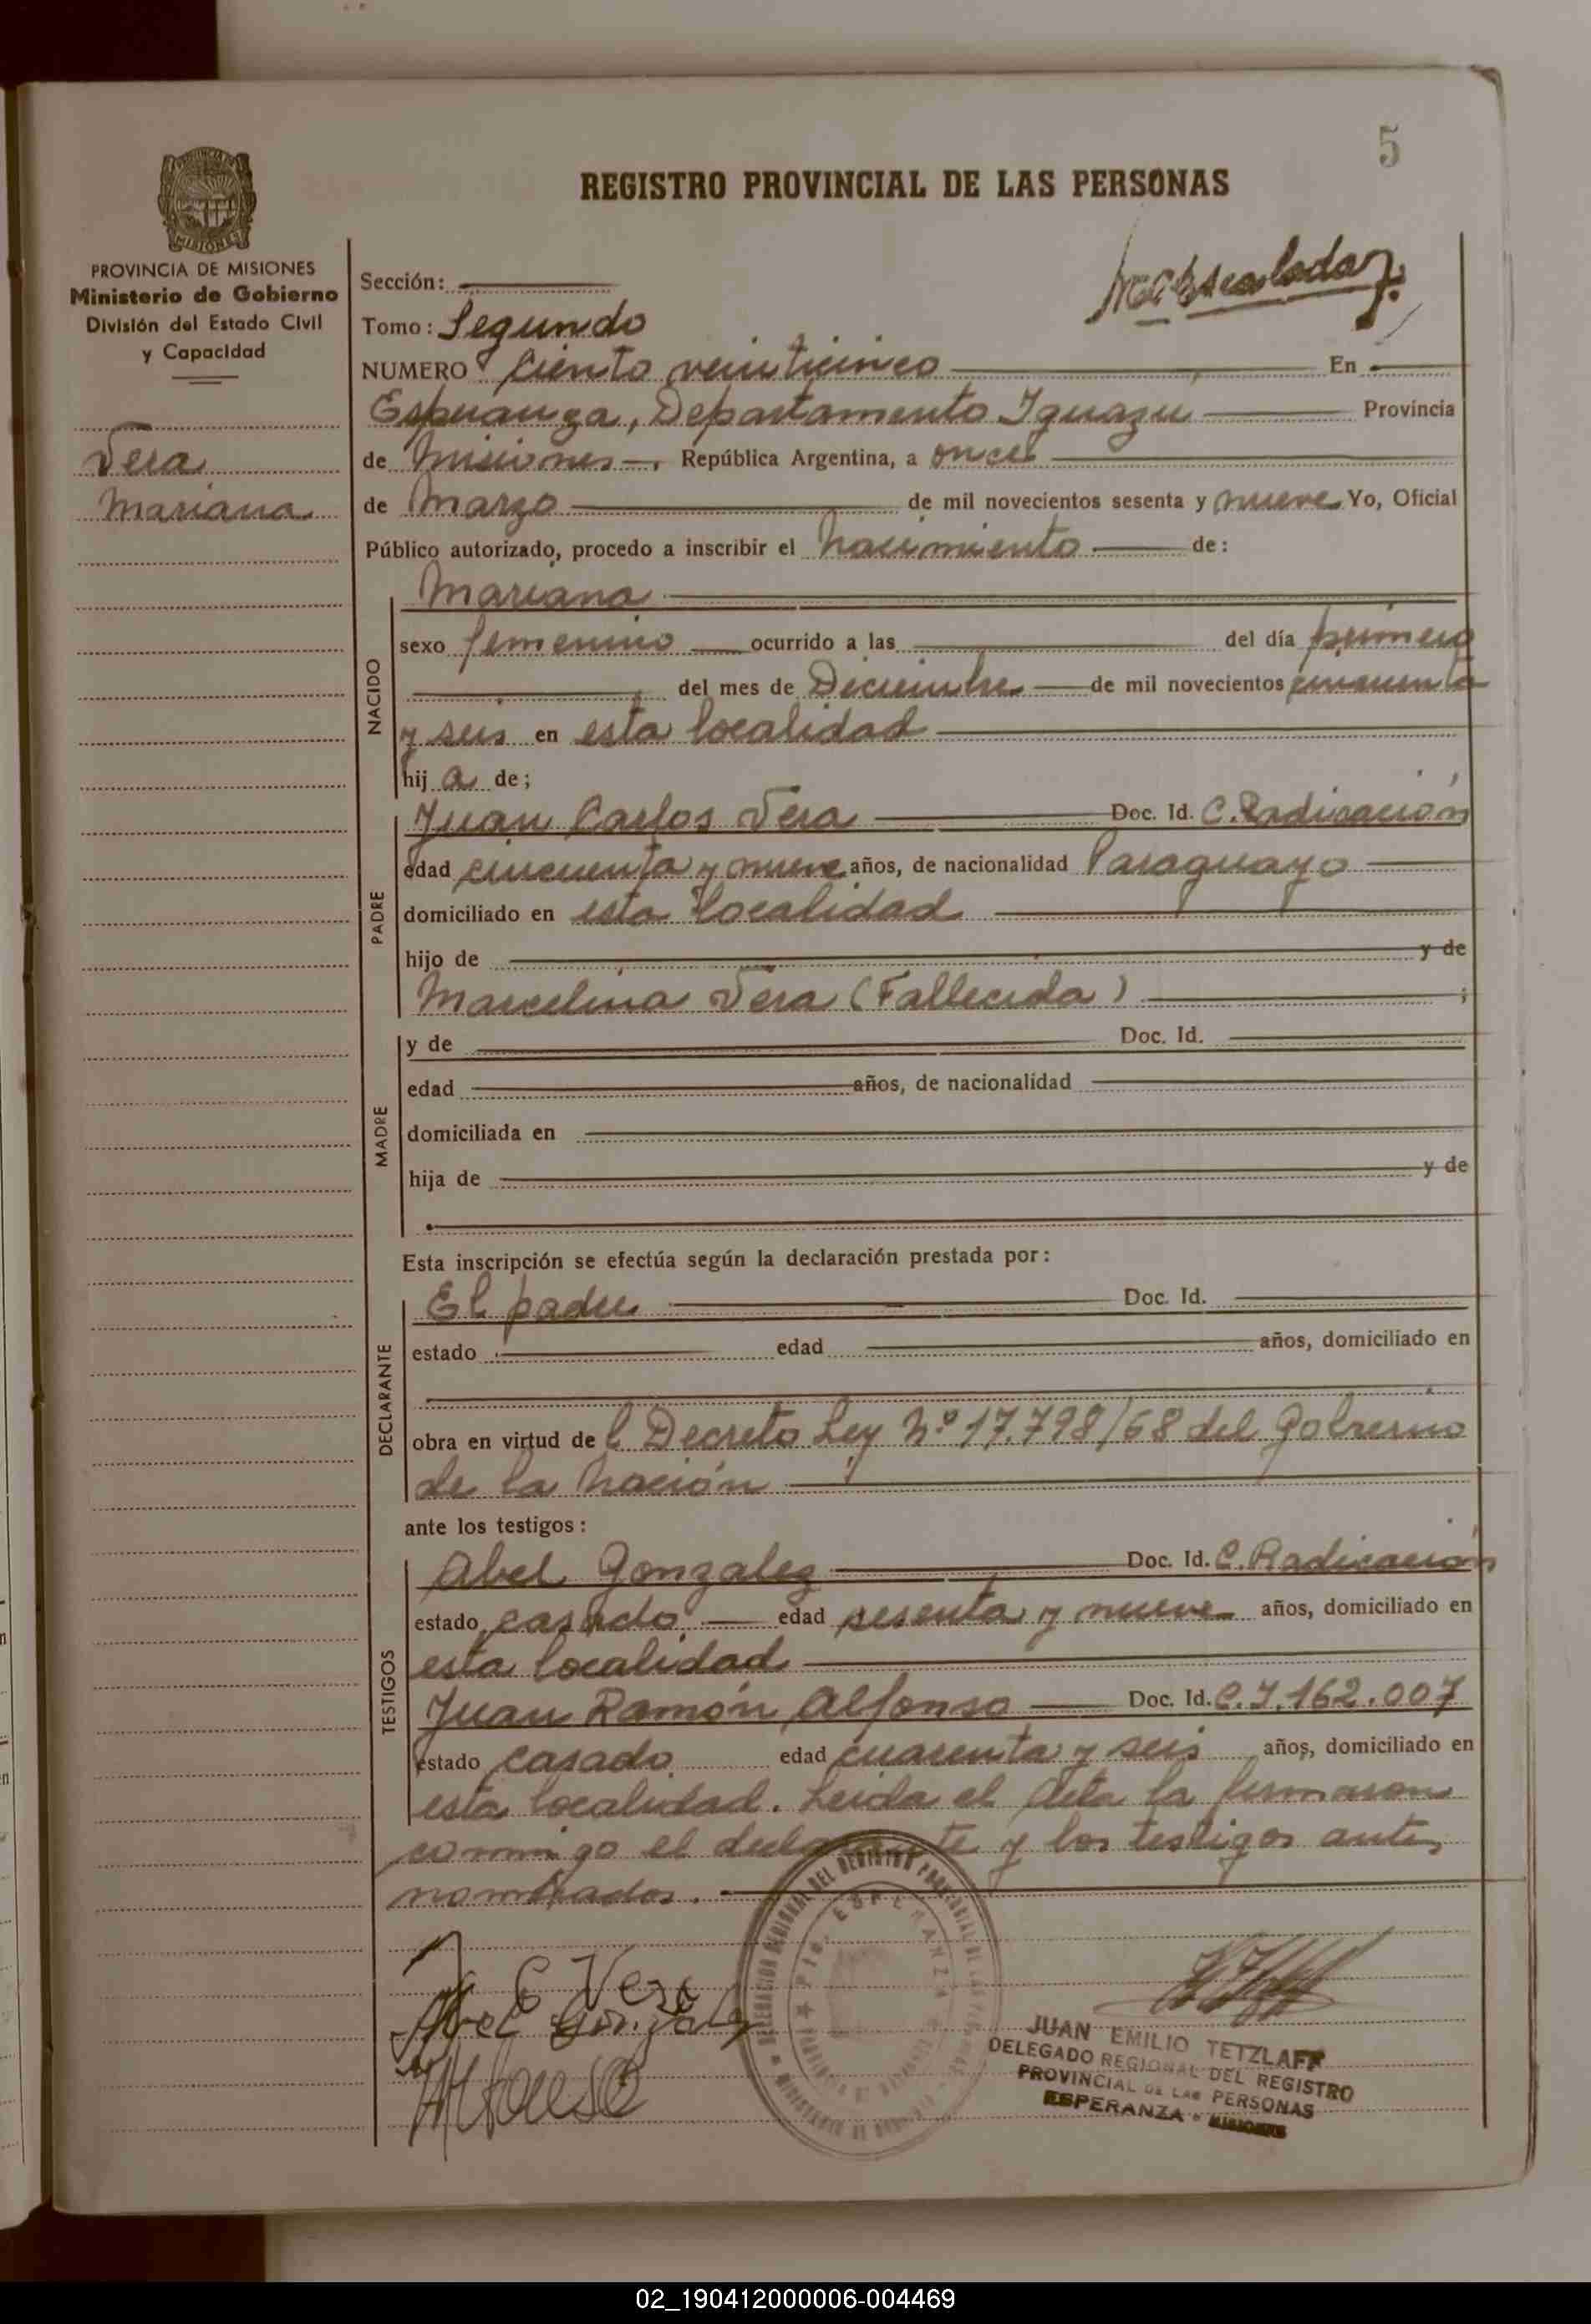 5
REGISTRO PROVINCIAL DE LAS PERSONAS
MISIONES
PROVINCIA DE MISIONES
Ministerio de Gobierno
División del Estado Civil
y Capacidad
Vera
Mariana
Sección:
Tomo: Segundo
NUMERO Ciento veinticinco En
Esperanza, Departamento Iguazu Provincia
de Misiones, República Argentina, a once
de Marzo de mil novecientos sesenta y nueve Yo, Oficial
Público autorizado, procedo a inscribir el nacimiento de:
NACIDO
Mariana
sexo femenino ocurrido a las del día primero
, del mes de Diciembre de mil novecientos cincuenta
y seis en esta localidad
hij a de;
PADRE
Juan Carlos Vera Doc. Id. C. Radicación
edad cincuenta y nueve años, de nacionalidad Paraguayo
domiciliado en esta localidad
hijo de y de
Marcelina Vera (Fallecida) ;
MADRE
y de Doc. Id.
edad años, de nacionalidad
domiciliada en
hija de y de
Esta inscripción se efectúa según la declaración prestada por:
DECLARANTE
El padre Doc. Id.
estado edad años, domiciliado en
obra en virtud de l Decreto Ley Nº 17.798/68 del Gobierno
de la Nación
ante los testigos:
TESTIGOS
Abel Gonzalez Doc. Id. C. Radicación
estado casado edad sesenta y nueve años, domiciliado en
esta localidad
Juan Ramón Alfonso Doc. Id. C.I. 162.007
estado casado edad cuarenta y seis años, domiciliado en
esta localidad. Leida el Acta la firmaron
conmigo el declarante y los testigos ante,
nombrados.
C Vera
Abel Gonzalez
Alfonso
DELEGACION REGIONAL DEL REGISTRO PROVINCIAL DE LAS PERSONAS
ESPERANZA
JUAN EMILIO TETZLAFF
DELEGADO REGIONAL DEL REGISTRO
PROVINCIAL DE LAS PERSONAS
ESPERANZA - MISIONES
02_190412000006-004469